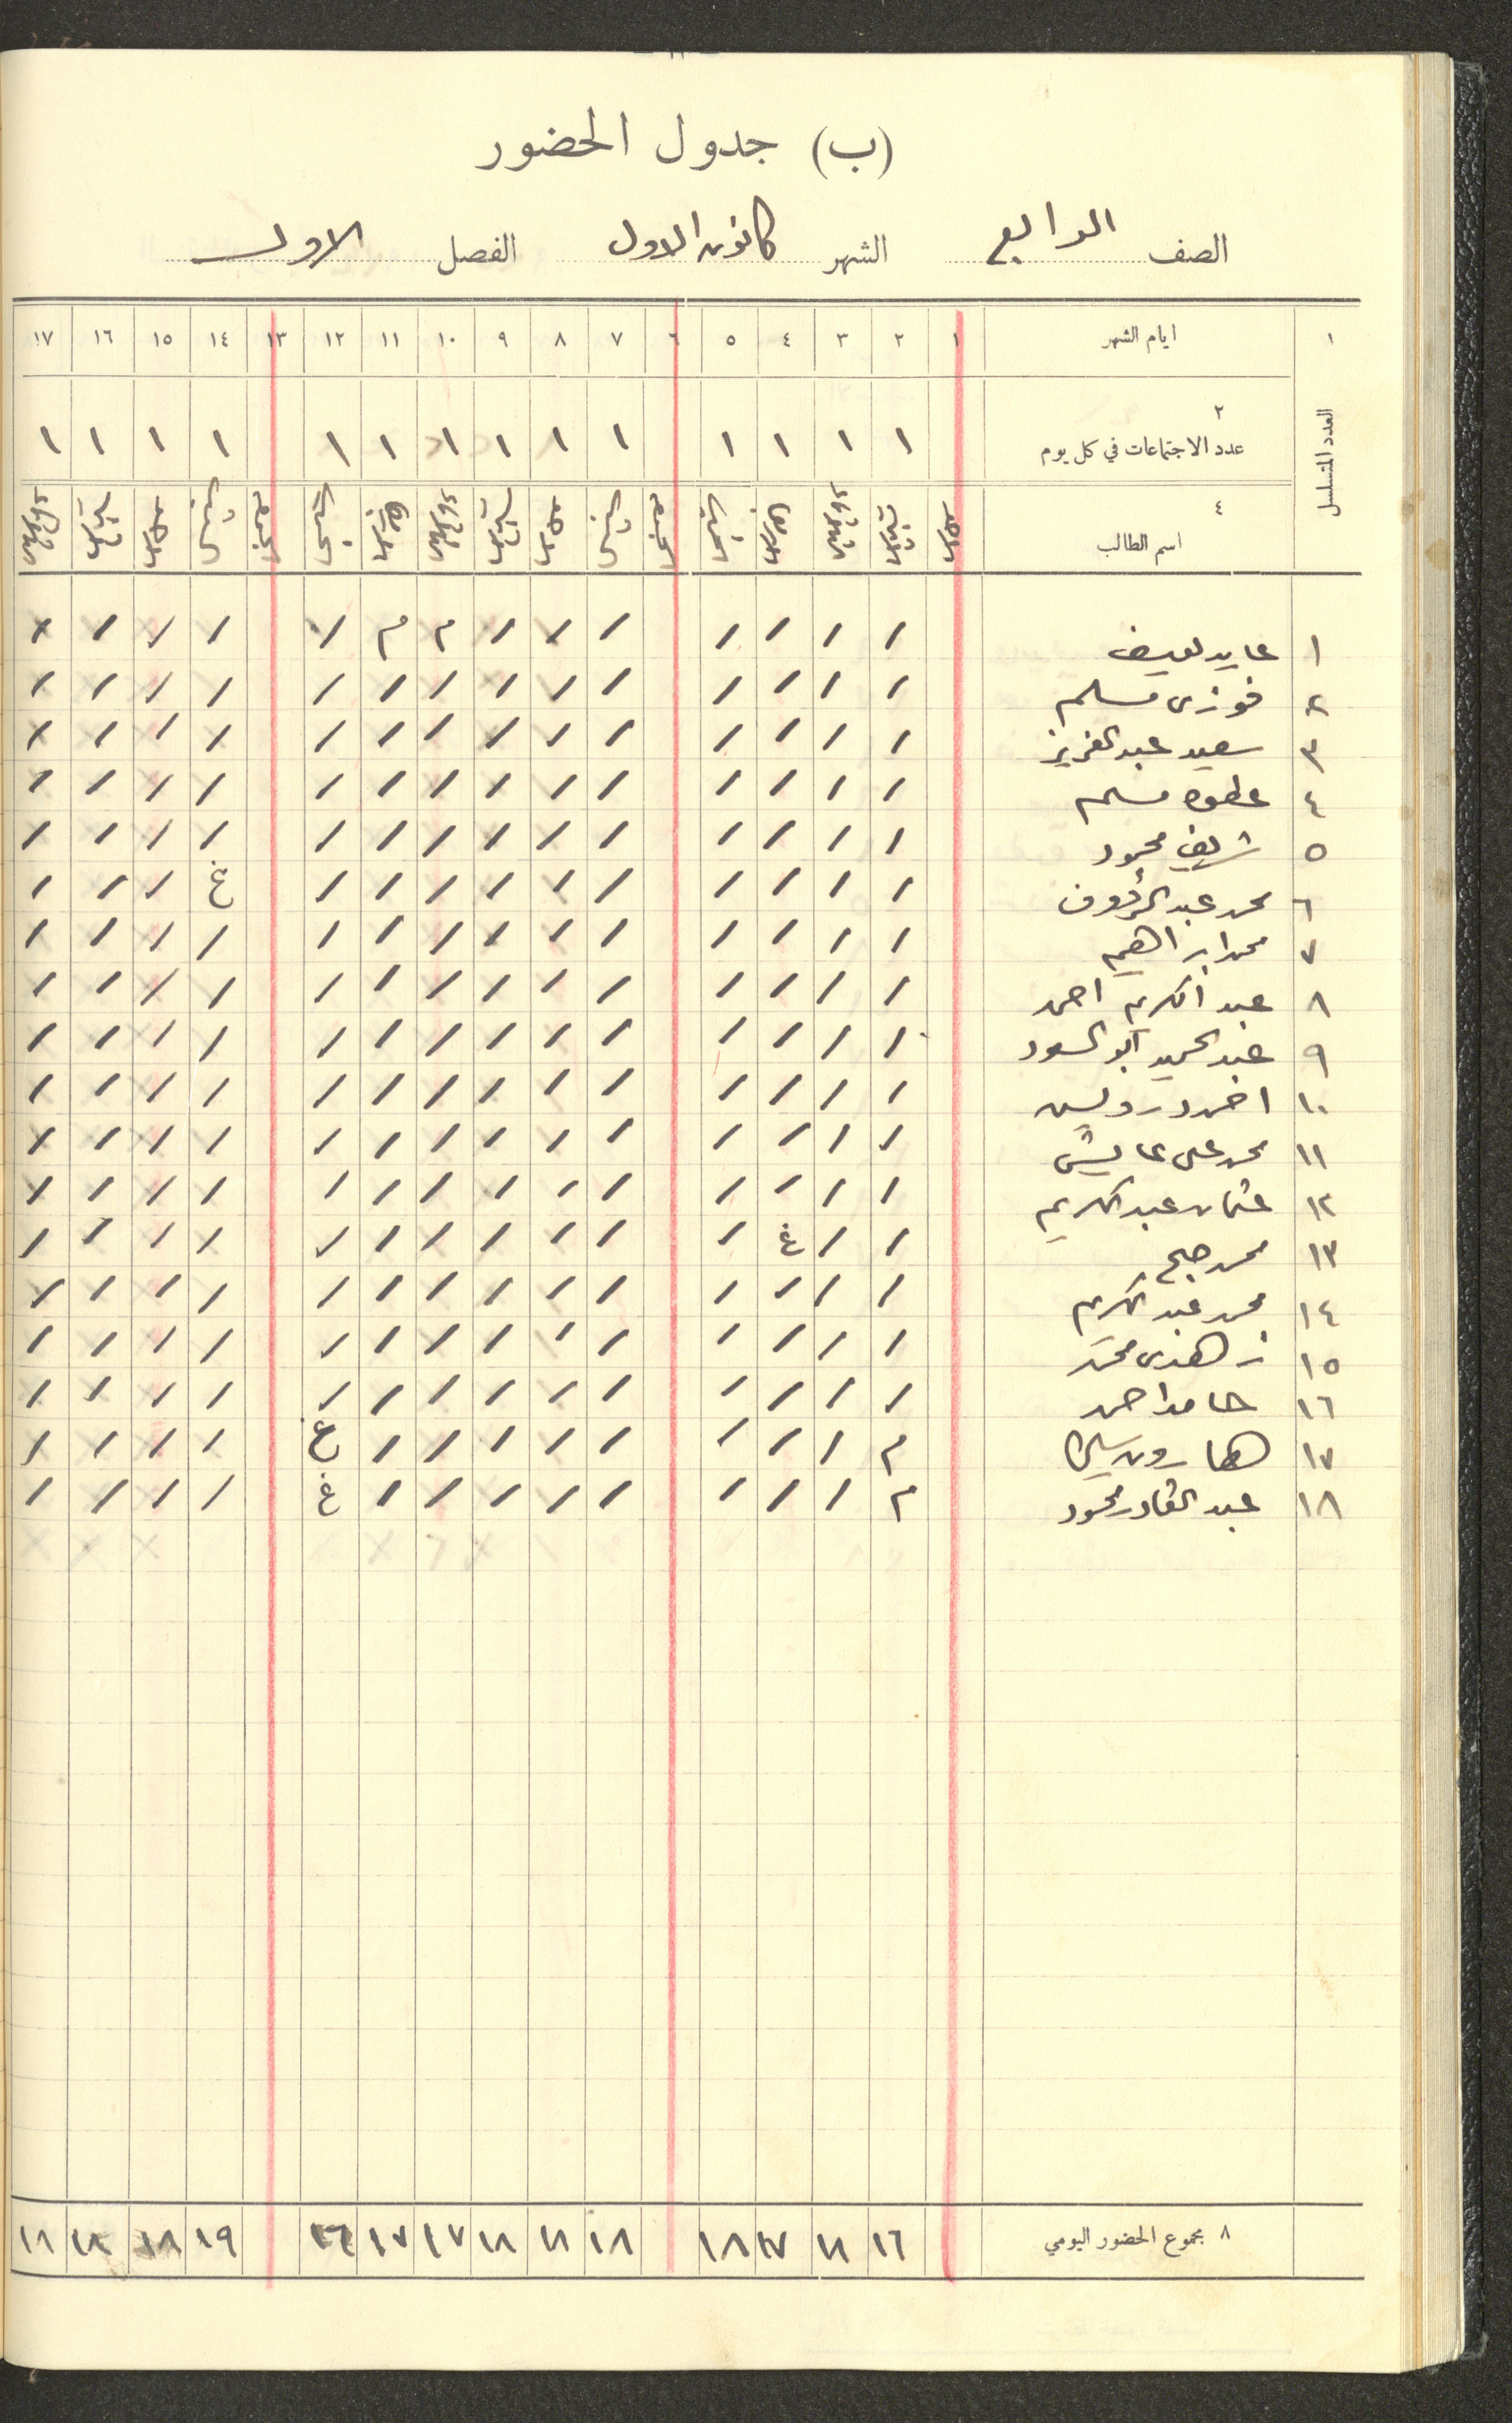 (ب) جدول الحضور
الصف الرابع الشهر كانون الاول الفصل الاول
١ ايام الشهر ١ ٢ ٣ ٤ ٥ ٦ ٧ ٨ ٩ ١٠ ١١ ١٢ ١٣ ١٤ ١٥ ١٦ ١٧
العدد المتسلسل
٢
عدد الاجتماعات في كل يوم ١ ١ ١ ١ ١ ١ ١ ١ ١ ١ ١ ١ ١ ١
٤
اسم الطالب
١ عايد / / / / / / / م م / / / / /
٢ فوزي مسلم / / / / / / / / / / / / / /
٣ سعيد عبد العزيز / / / / / / / / / / / / / /
٤ عطوه مسلم / / / / / / / / / / / / / /
٥ شريف محمود / / / / / / / / / / / / / /
٦ محمد عبد الرؤوف / / / / / / / / / / غ / / /
٧ محمد ابراهيم / / / / / / / / / / / / / /
٨ عبد الكريم احمد / / / / / / / / / / / / / /
٩ عبد الحميد ابو السعود / / / / / / / / / / / / / /
١٠ احمد درويش / / / / / / / / / / / / / /
١١ محمد علي عايش / / / / / / / / / / / / / /
١٢ عثمان عبد الكريم / / / / / / / / / / / / / /
١٣ محمد / / غ / / / / / / / / / / /
١٤ محمد عبد الكريم / / / / / / / / / / / / / /
١٥ زهدي محمد / / / / / / / / / / / / / /
١٦ حامد احمد / / / / / / / / / / / / / /
١٧ هارون م / / / / / / / / غ / / / /
١٨ عبد القادر محمود م / / / / / / / / غ / / / /
٨ مجموع الحضور اليومي ١٦ ١٨ ١٧ ١٨ ١٨ ١٨ ١٨ ١٧ ١٧ ١٦ ١٩ ١٨ ١٨ ١٨